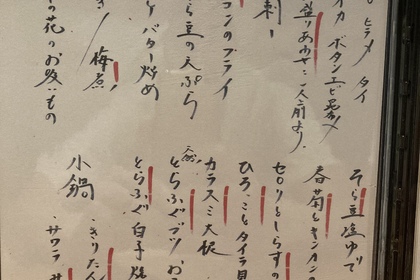 ヒラメ タイ
イカ ボタンエビ
盛りあわせ 二人前より
刺
コンのフライ
そら豆の天ぷら
バター炒め
梅煮
の花のお吸いもの
そら豆塩ゆで
春菊とキンカンの
セロリとしらすの
ひろっことタイラ貝
カラスミ大根
天然
とらふぐブツ
とらふぐ白子焼
小鍋
・きりたん
・サワラ